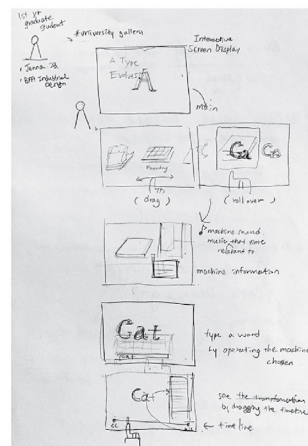 1st yr
graduate
student
• Jenna
• BFA Industrial
Design
#university gallery
Interactive
Screen Display
A Type
A
main
(drag)
(rollover)
Ca
♪ machine sound
music that
machine information
Cat
type a word
by operating the machine
chosen
Cat
see the transformation
by dragging the timeline
← timeline